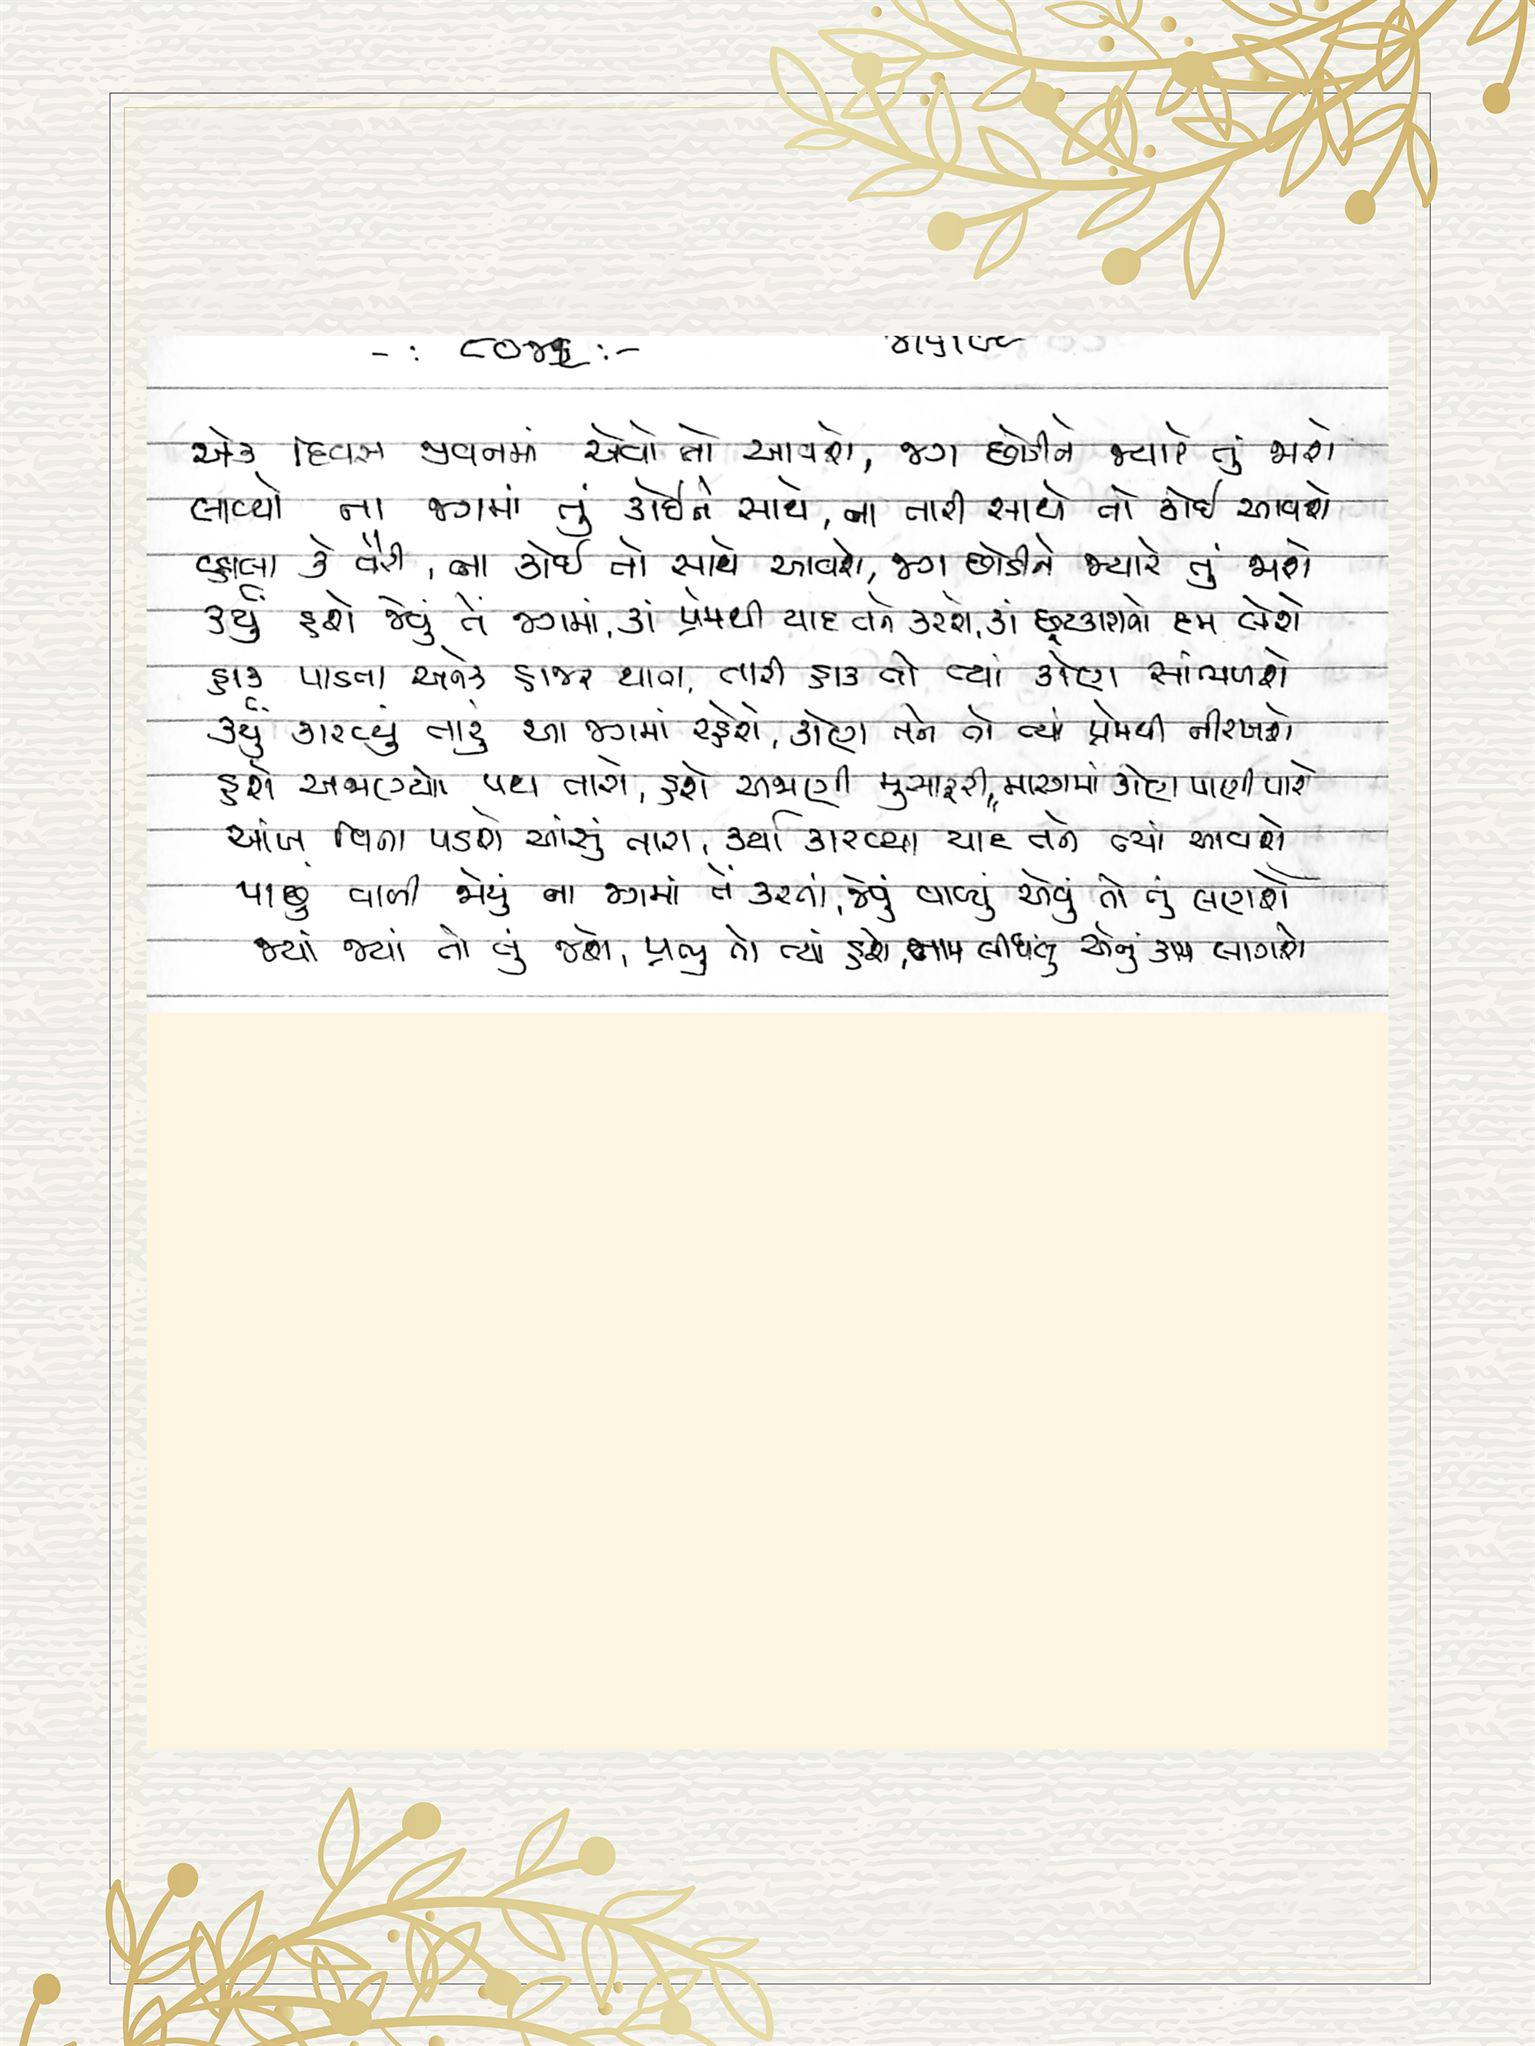 એક દિવસ જીવનમાં એવો તો આવશે, જગ છોડીને જ્યારે તું જાશે
લાવ્યો ના જગમાં તું કોઈને સાથે, ના તારી સાથે તો કોઈ આવશે
વ્હાલા કે વૈરી, ના કોઈ તો સાથે આવશે, જગ છોડીને જ્યારે તું જાશે
કર્યું હશે જેવું તેં જગમાં, કાં પ્રેમથી યાદ તને કરશે, કાં છૂટકારાનો દમ લેશે
હાક પાડતા અનેક હાજર થાતા, તારી હાક તો ત્યાં કોણ સાંભળશે
કર્યું કારવ્યું તારું આ જગમાં રહેશે, કોણ તને તો ત્યાં પ્રેમથી નીરખશે
હશે અજાણ્યો પથ તારો, હશે અજાણી મુસાફરી, મારગમાં કોણ પાણી પાશે
આંખ વિના પડશે આંસું તારા, કર્યા કારવ્યા યાદ તને ત્યાં આવશે
પાછું વાળી જોયું ના જગમાં તેં કરતાં, જેવું વાવ્યું એવું તો તું લણશે
જ્યાં જ્યાં તો તું જાશે, પ્રભુ તો ત્યાં હશે, નામ લીધેલું એનું કામ લાગશે